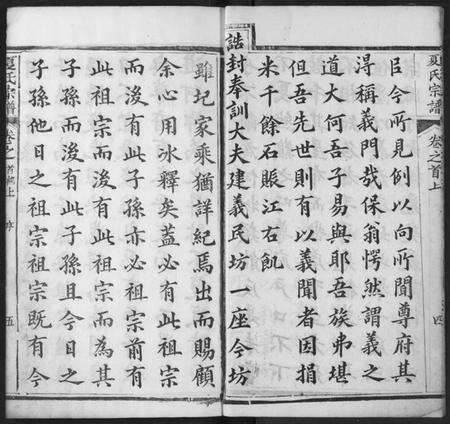 夏氏宗譜
卷之首上
四
臣今所見例以向所聞尊府其
得稱義門哉保翁愕然謂義之
道大何吾子易與耶吾族弗堪
但吾先世則有以義聞者因捐
米千餘石賑江右飢
誥封奉訓大夫建義民坊一座今坊
雖圮家乘猶詳紀焉出而賜顧
余心用冰釋矣蓋必有此祖宗
而後有此子孫亦必祖宗前有
此祖宗而後有此祖宗而為其
子孫而後有此子孫且今日之
子孫他日之祖宗祖宗既有今
夏氏宗譜
卷之首上
序
五